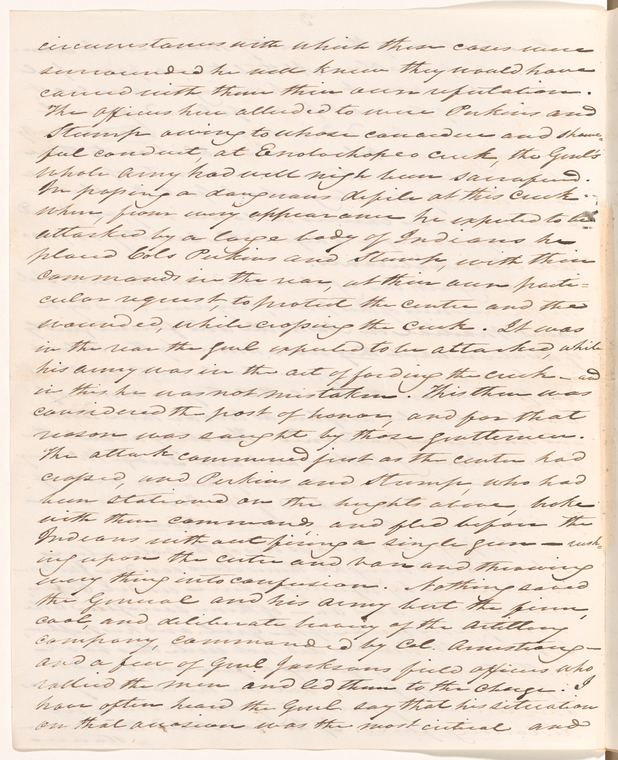 circumstances with which these cases were
surrounded he well knew they would have
carried with them their own refutation.
The officers here alluded to were Perkins and
Stump owing to whose cowardice and shame-
ful conduct, at Enotochopco creek, the Genl's
whole army had well nigh been sacrificed.
In passing a dangerous defile at this creek
when, from every appearance he expected to be
attacked by a large body of Indians he
placed Cols Perkins and Stump, with their
commands in the rear, at their own parti=
cular request, to protect the center and the
wounded, while crossing the creek. It was
in the rear the Genl expected to be attacked, while
his army was in the act of fording the creek - and
in this he was not mistaken. This then was
considered the post of honor, and for that
reason was sought by those gentlemen.
The attack commenced just as the center had
crossed, and Perkins and Stump, who had
been stationed on the heights above, broke
with their commands, and fled before the
Indians without firing a single gun - rush-
ing upon the center and van and throwing
every thing into confusion. Nothing saved
the General and his army but the firm,
cool, and deliberate bravery of the Artillery
company, commanded by Col. Armstrong -
and a few of Genl Jacksons field officers who
rallied the men and led them to the charge. I
have often heard the Genl say that his situation
on that occasion was the most critical and